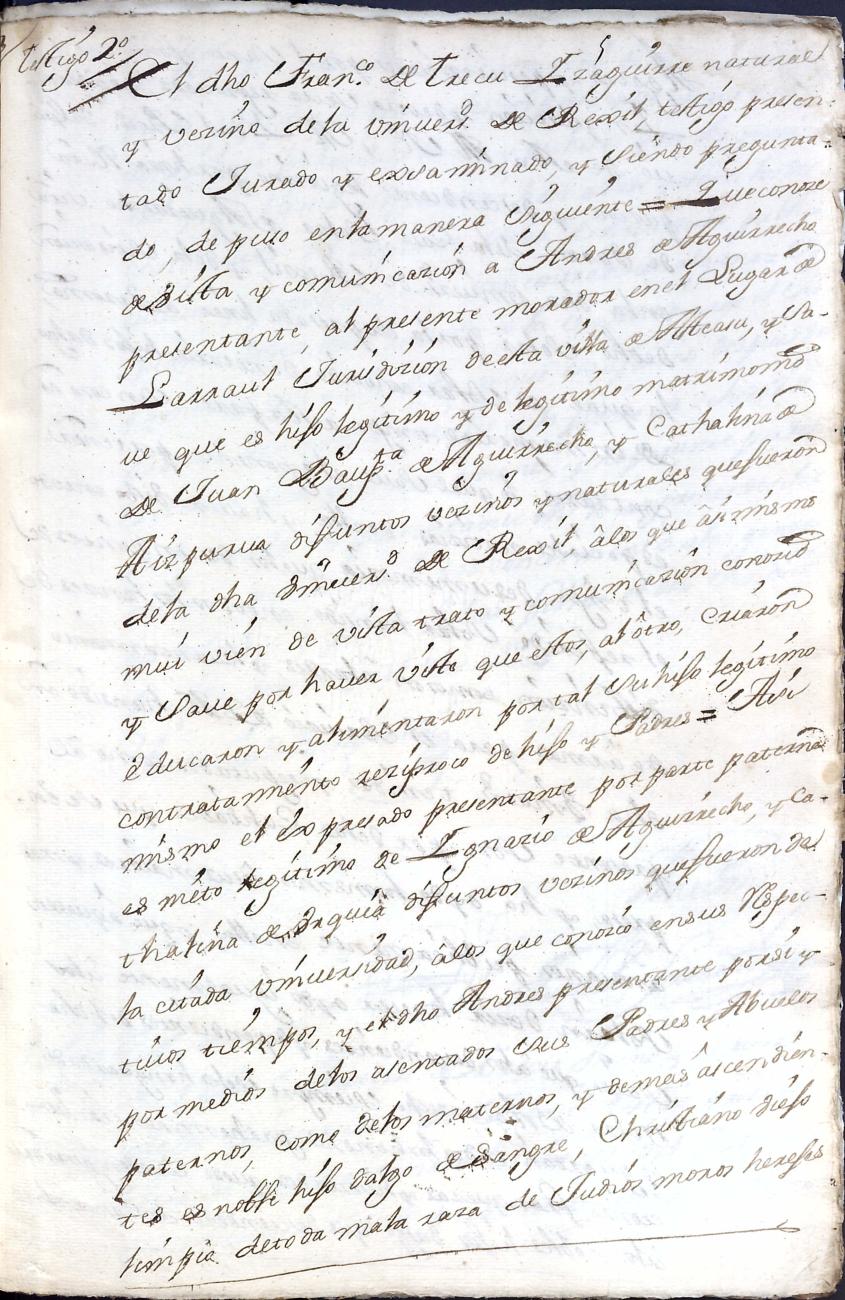 testigo 2º
El dho Franco. De Trecu Izaguirre natural
y vezino dela Vniuerd. De Rexil, testigo presen-
tado Jurado y exsaminado, y siendo pregunta-
do, depuso enla manera siguiente = Que conoze
de vista y comunicazión a Andres de Aguirrecho
presentante, al presente morador en el Lugar de
Larraul Jurisdizión de esta villa de Alcasu, y sa-
ue que es hiso legítimo y de legítimo matrimonio
De Juan Baupta de Aguirrecho, y Cathalina de
Aizpurua difuntos vezinos y naturales que fueron
dela dha Vniuerd. De Rexil, âlos que âsimismo
mui vién de vista trato y comunicazión conozió
y saue por hauer visto que estos, al ôtro, criaron
educaron y alimentaron por tal su hiso legítimo
contratamiento rezíproco de hiso y Padres = Asi
mismo el expresado presentante por parte paterna
es niéto legítimo de Ignazio de Aguirrecho, y Ca-
thalina de Vrquia difuntos vezinos que fueron de
la citada Vniuersidad, âlos que conozió en sus Respec-
tiuos tiempos, y el dho Andres presentante por si y
por medios delos asentados sus Padres y Abuelos
paternos, como delos maternos, y demas âscendien-
tes es noble hiso dalgo de Sangre, Christiano vieso
limpio de toda mala raza de Judios moros hereses